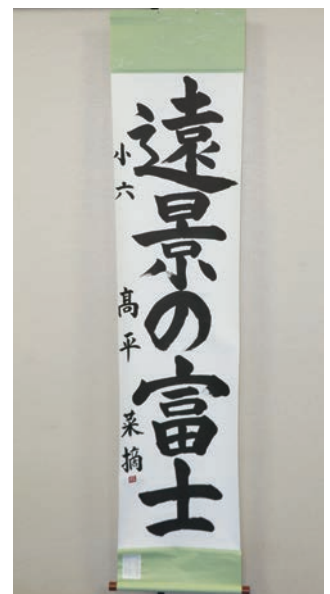 遠景の富士
小六 髙平菜摘